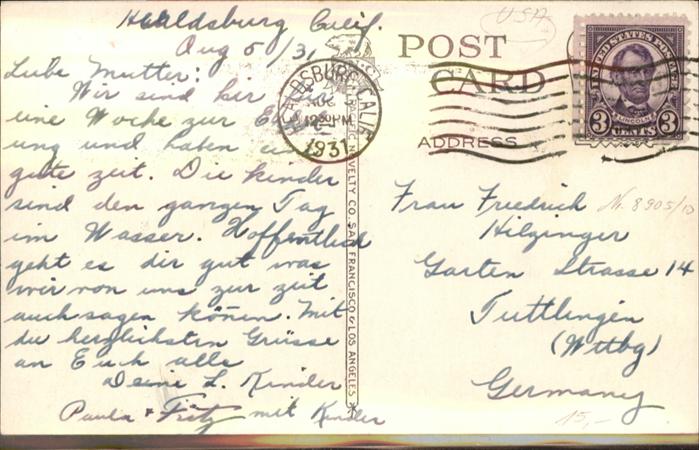 Healdsburg Calif.
Aug 5/31
Liebe Mutter:
Wir sind hier für
eine Woche zur
ung und haben eine
gute zeit. Die kinder
sind den ganzen Tag
im Wasser. Hoffentlich
geht es dir gut was
wir von uns zur zeit
auch sagen könen. Mit
die herzlichsten Grüsse
an Euch alle
Deine L. Kinder
Paula + Fritz mit Kinder
USA
POST
CARD
ADDRESS
HEALDSBURG, CALIF.
AUG
12:30 PM
1931
UNITED STATES POSTAGE
LINCOLN
3 CENTS 3
NOVELTY CO. SAN FRANCISCO & LOS ANGELES
Frau Friedrich
Nr. 8905/10
Hilzinger
Garten Strasse 14
Tuttlingen
(Wttbg)
Germany
15,-